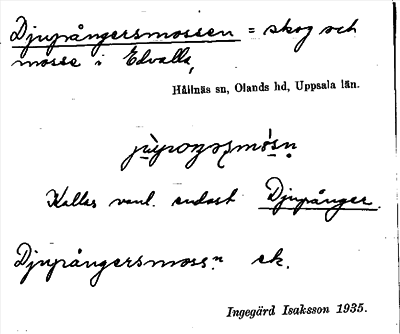 Djupångersmossen = skog och
mosse i Edvalla,
Hållnäs sn, Olands hd, Uppsala län.
Kallas vanl. endast Djupånger.
Djupångersmoss:n ek.
Ingegärd Isaksson 1935.